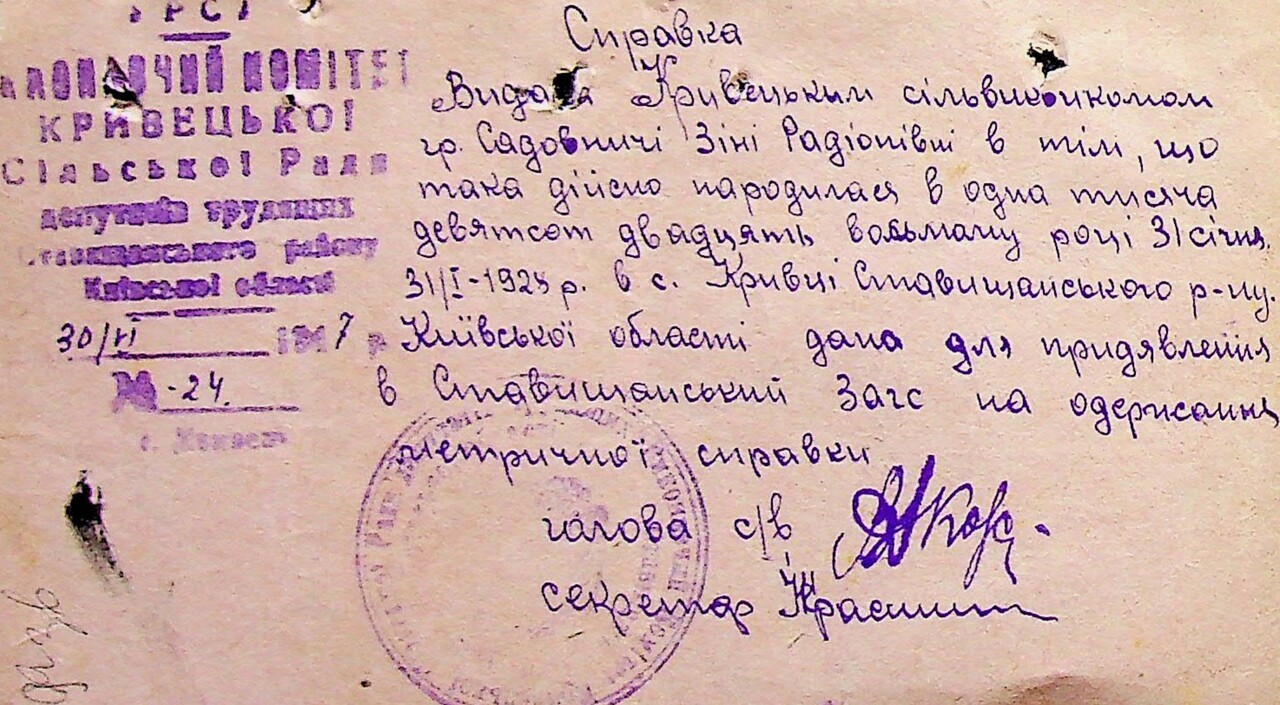 УРСР
ВИКОНАВЧИЙ КОМІТЕТ
КРИВЕЦЬКОЇ
Сільської Ради
депутатів трудящих
Ставищанського району
Київської області
30/VI 1947 р
№ -24.
Справка
Видана Кривецьким сільвиконкомом
гр. Садовничі Зіні Радіонівні в тім, що
така дійсно народилася в одна тисяча
девятсот двадцять восьмаму році 31 січня.
31/I-1928 р. в с. Кривці Ставищанського р-ну.
Київської області дана для придявлення
в Ставищанський Загс на одержання
метричної справки
галова с/в
секретар